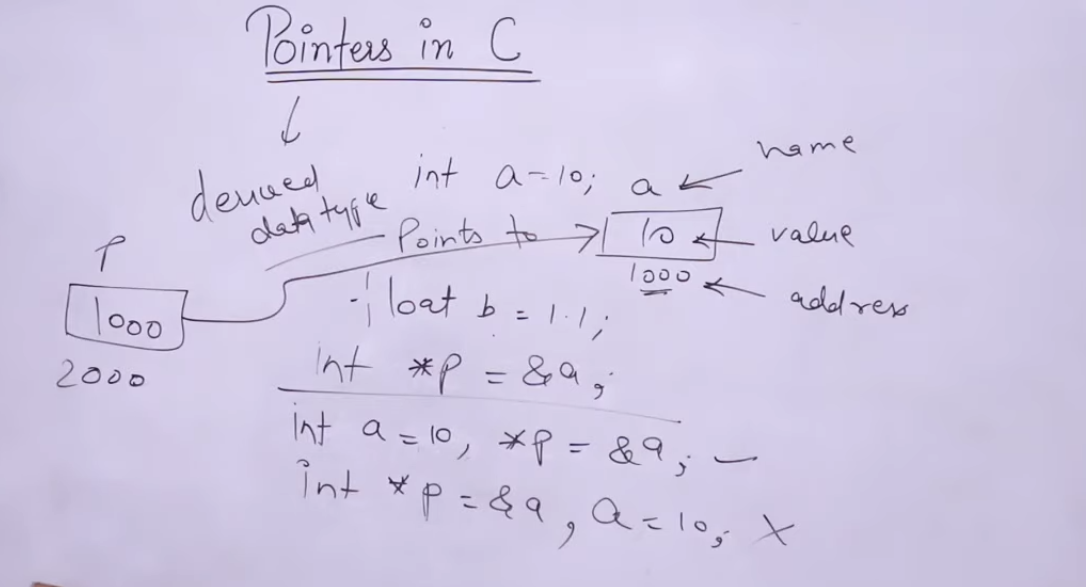 Pointers in C
derived
data type
int a=10;
a
name
Points to
10
value
1000
address
P
1000
2000
float b = 1.1;
int *p = &a;
int a=10, *p = &a;
int *p = &a, a=10; X